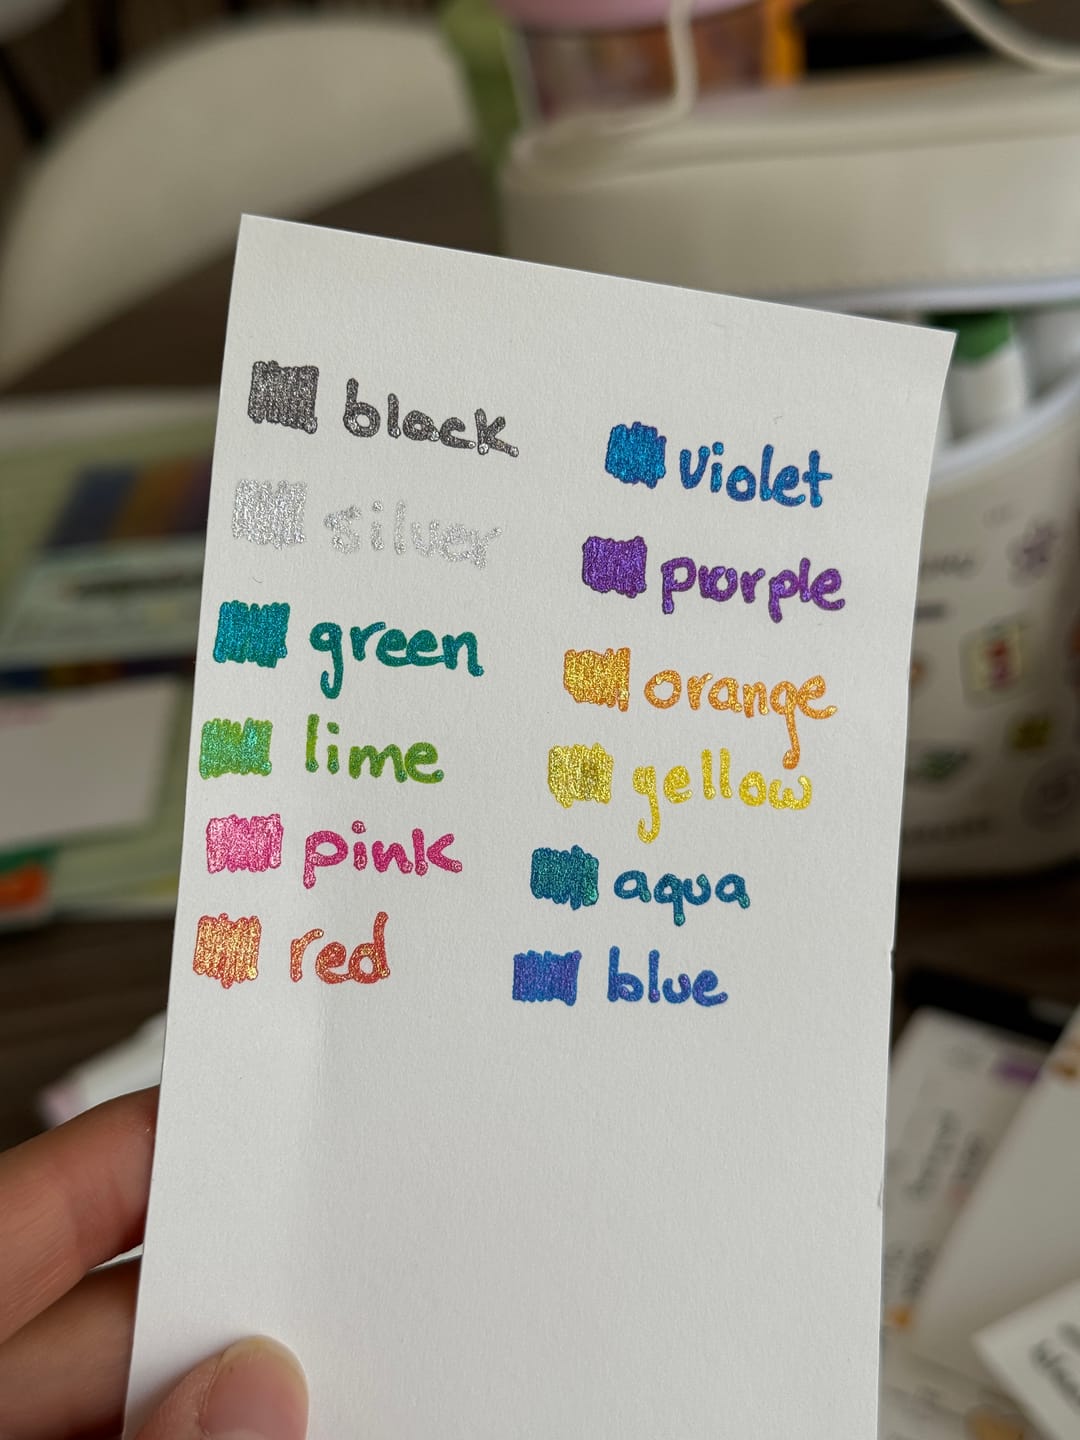 black
silver
green
lime
pink
red
violet
purple
orange
yellow
aqua
blue